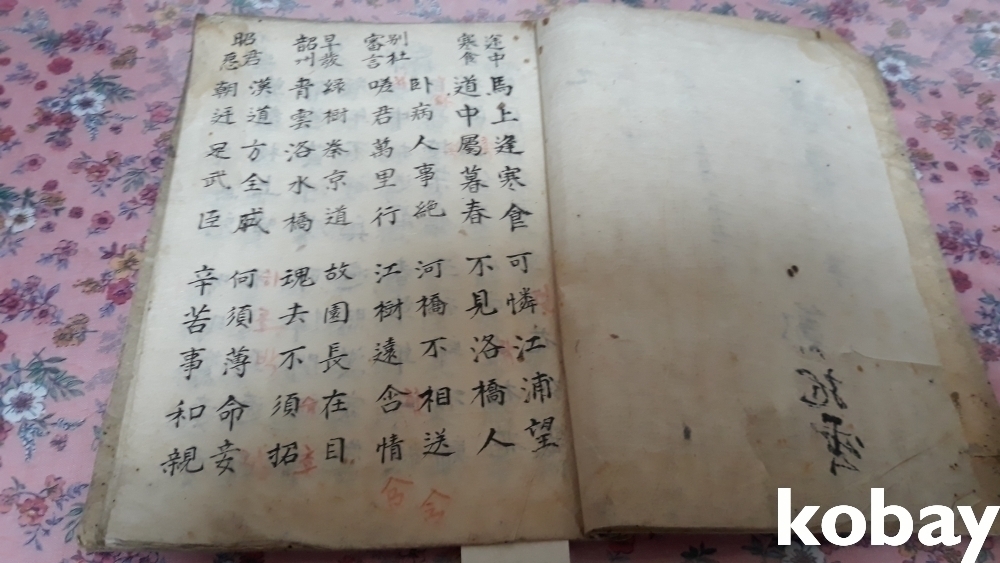 途中 馬上逢寒食 可憐江浦望
寒食 道中屬暮春 不見洛橋人
別杜 卧病人事絶 河橋不相送
審言 嗟君萬里行 江樹遠含情
早發 綠樹秦京道 故園長在目
韶州 青雲洛水橋 魂去不須招
昭君 漢道方全盛 何須薄命妾
怨 朝廷足武臣 辛苦事和親
kobay